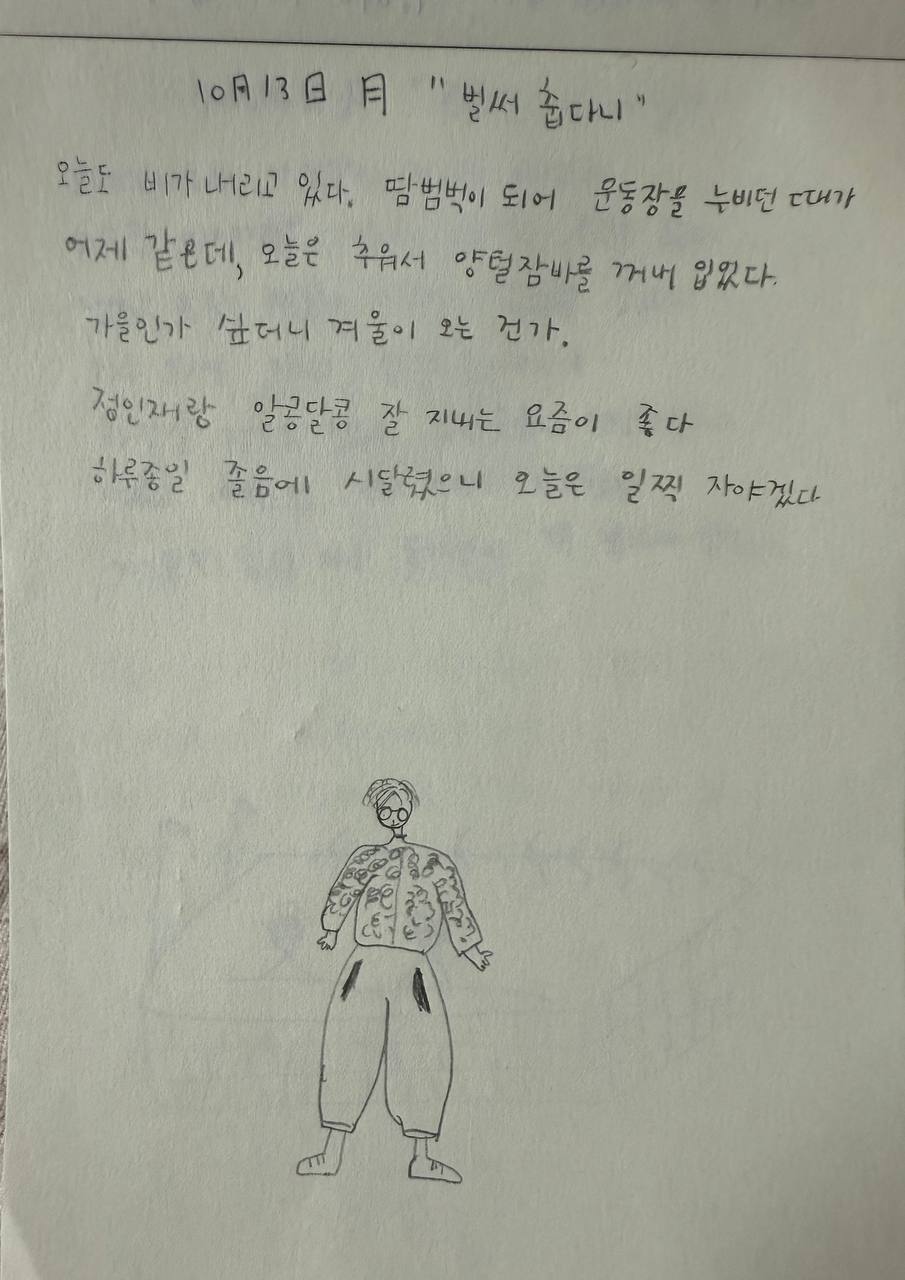 10月13日 月 "벌써 춥다니"
오늘도 비가 내리고 있다. 땀범벅이 되어 운동장을 누비던 때가
어제 같은데, 오늘은 추워서 양털잠바를 꺼내 입었다.
가을인가 싶더니 겨울이 오는 건가.
정인재랑 알콩달콩 잘 지내는 요즘이 좋다
하루종일 졸음에 시달렸으니 오늘은 일찍 자야겠다